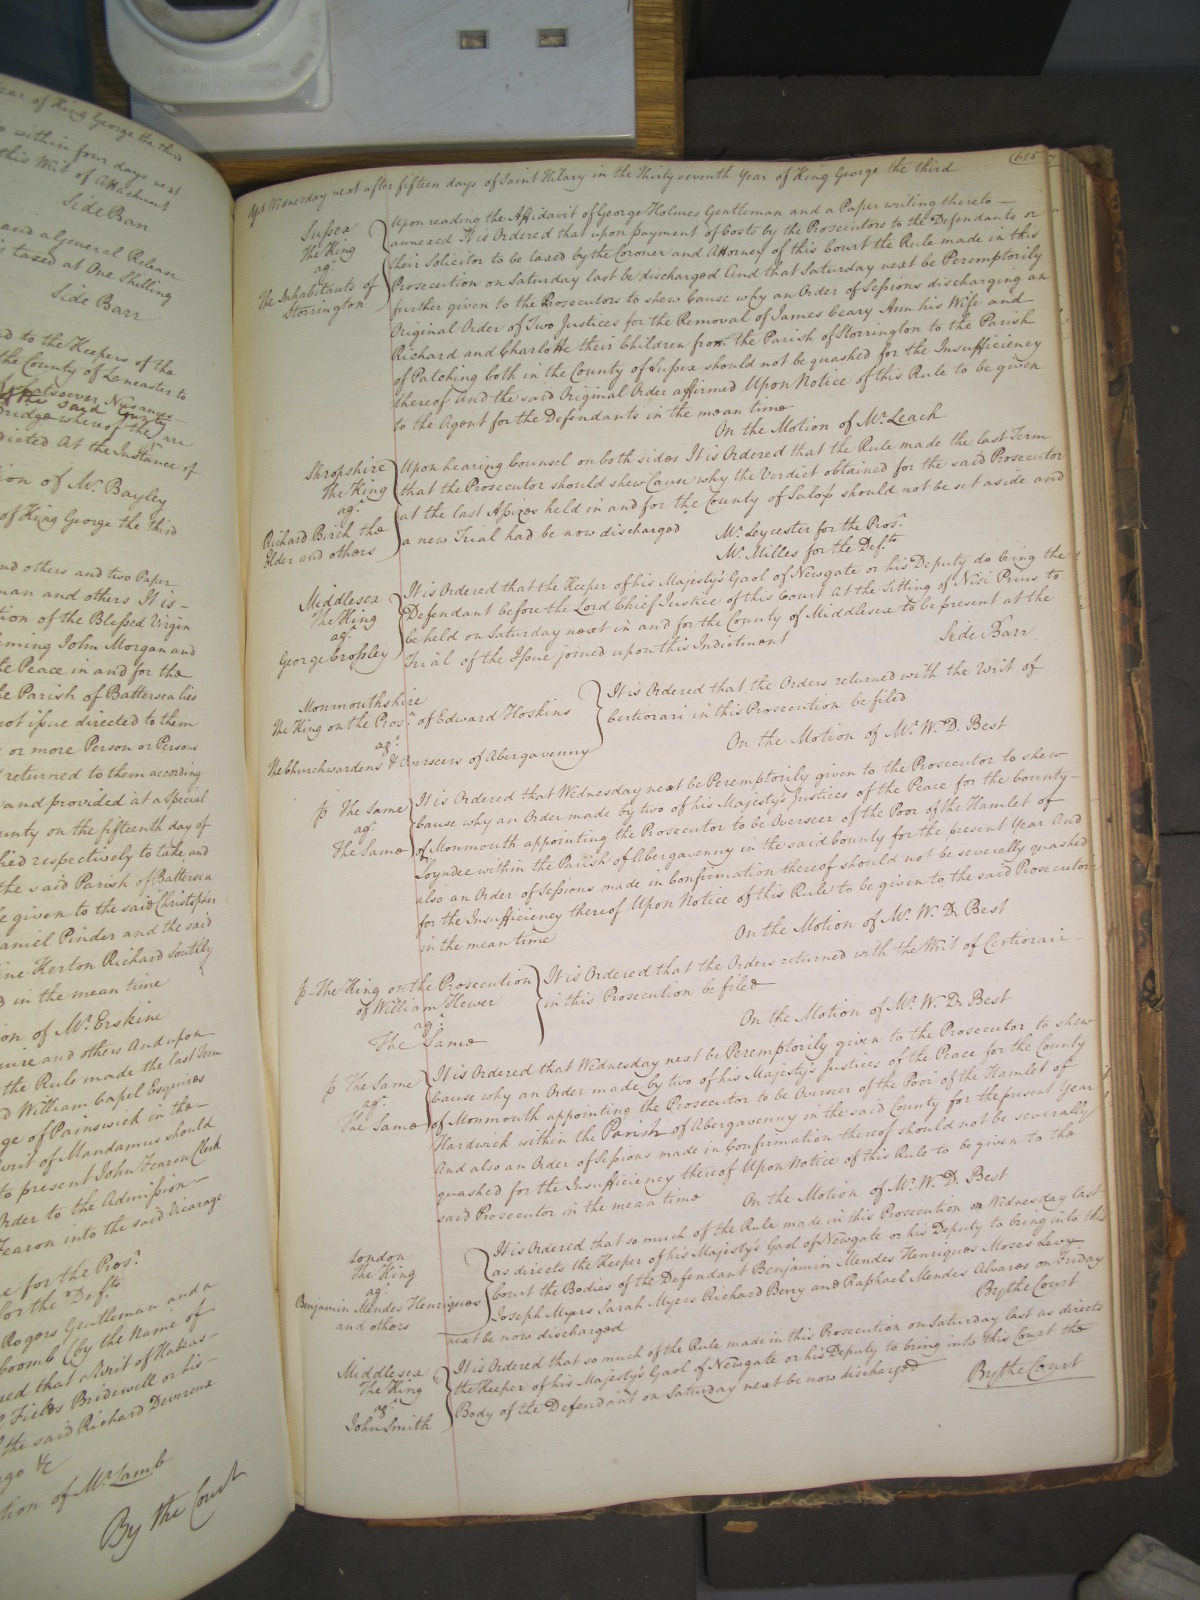 ear of King George the third
within four days next
this Writ of Attachment
Side Barr
and a General Release
taxed at One Shilling
Side Barr
ed to the Keepers of the
the County of Lancaster to
Whatsoever Nusances
of the said
Bridge whereof the are
dicted At the Instance of
ion of Mr. Bayley
of King George the third
nd others and two Paper
man and others It is -
tion of the Blessed Virgin
eming John Morgan and
he Peace in and for the
he Parish of Battersea lies
not issue directed to them
or more Person or Persons
returned to them according
and provided at a Special
unty on the fifteenth day of
hed respectively to take and
the said Parish of Battersea
e given to the said Christopher
aniel Pinder and the said
ine Horton Richard Southby
d in the mean time
ion of Mr. Erskine
uire and others And upon
the Rule made the last Term
d William Capel Esquires
ge of Painswick in the
writ of Mandamus should
to present John Fearon Clerk
Order to the Admission
Fearon into the said Vicarage
e for the Pros.r
for the Def.ts
Rogers Gentleman and a
coomb (by the Name of
red that a Writ of Habeas
Fields Bridewell or his
the said Richard Devereux
ago &c
tion of Mr. Lamb
By the Court
(615
Wednesday next after fifteen days of Saint Hilary in the Thirty seventh Year of King George the third
Sussex
The King
ag.t
The Inhabitants of
Storrington
Upon reading the Affidavit of George Holmes Gentleman and a Paper writing thereto —
annexed It is Ordered that upon payment of Costs by the Prosecutors to the Defendants or
their Solicitor to be taxed by the Coroner and Attorney of this Court the Rule made in this
Prosecution on Saturday last be discharged And that Saturday next be Peremptorily
further given to the Prosecutors to shew Cause why an Order of Sessions discharging an
Original Order of Two Justices for the Removal of James Geary Ann his Wife and
Richard and Charlotte their Children from the Parish of Storrington to the Parish
of Patching both in the County of Sussex should not be quashed for the Insufficiency
thereof And the said Original Order affirmed Upon Notice of this Rule to be given
to the Agent for the Defendants in the mean time
On the Motion of Mr. Leach
Shropshire
The King
ag.t
Richard Birch the
Elder and others
Upon hearing Counsel on both sides It is Ordered that the Rule made the last Term
that the Prosecutor should shew Cause why the Verdict obtained for the said Prosecutor
at the last Assizes held in and for the County of Salop should not be set aside and
a new Trial had be now discharged
Mr. Leycester for the Pros.r
Mr. Milles for the Def.ts
Middlesex
The King
ag.t
George Crossley
It is Ordered that the Keeper of his Majesty's Gaol of Newgate or his Deputy do bring the
Defendant before the Lord Chief Justice of this Court At the Sitting of Nisi Prius to
be held on Saturday next in and for the County of Middlesex to be present at the
Trial of the Issue joined upon this Indictment
Side Barr
Monmouthshire
The King on the Pros.n of Edward Hoskins
ag.t
The Churchwardens & Overseers of Abergavenny
It is Ordered that the Orders returned with the Writ of
Certiorari in this Prosecution be filed
On the Motion of Mr. W. D. Best
The Same
ag.t
The Same
It is Ordered that Wednesday next be Peremptorily given to the Prosecutor to shew
Cause why an Order made by two of his Majesty's Justices of the Peace for the County
of Monmouth appointing the Prosecutor to be Overseer of the Poor of the Hamlet of
within the Parish of Abergavenny in the said County for the present Year And
also an Order of Sessions made in Confirmation thereof should not be severally quashed
for the Insufficiency thereof Upon Notice of this Rule to be given to the said Prosecutor
in the mean time
On the Motion of Mr. W. D. Best
The King on the Prosecution
of William Hewer
ag.t
The Same
It is Ordered that the Orders returned with the Writ of Certiorari
in this Prosecution be filed
On the Motion of Mr. W. D. Best
The Same
ag.t
The Same
It is Ordered that Wednesday next be Peremptorily given to the Prosecutor to shew
Cause why an Order made by two of his Majesty's Justices of the Peace for the County
of Monmouth appointing the Prosecutor to be Overseer of the Poor of the Hamlet of
Hardwick within the Parish of Abergavenny in the said County for the present Year
And also an Order of Sessions made in Confirmation thereof should not be severally
quashed for the Insufficiency thereof Upon Notice of this Rule to be given to the
said Prosecutor in the mean time
On the Motion of Mr. W. D. Best
London
The King
ag.t
Benjamin Mendes Henriques
and others
It is Ordered that so much of the Rule made in this Prosecution on Wednesday last
as directs the Keeper of his Majesty's Gaol of Newgate or his Deputy to bring into this
Court the Bodies of the Defendant Benjamin Mendes Henriques Moses Levy
Joseph Myers Sarah Myers Richard Berry and Raphael Mendes Alvares on Friday
next be now discharged
By the Court
Middlesex
The King
ag.t
John Smith
It is Ordered that so much of the Rule made in this Prosecution on Saturday last as directs
the Keeper of his Majesty's Gaol of Newgate or his Deputy to bring into this Court the
Body of the Defendant on Saturday next be now discharged
By the Court